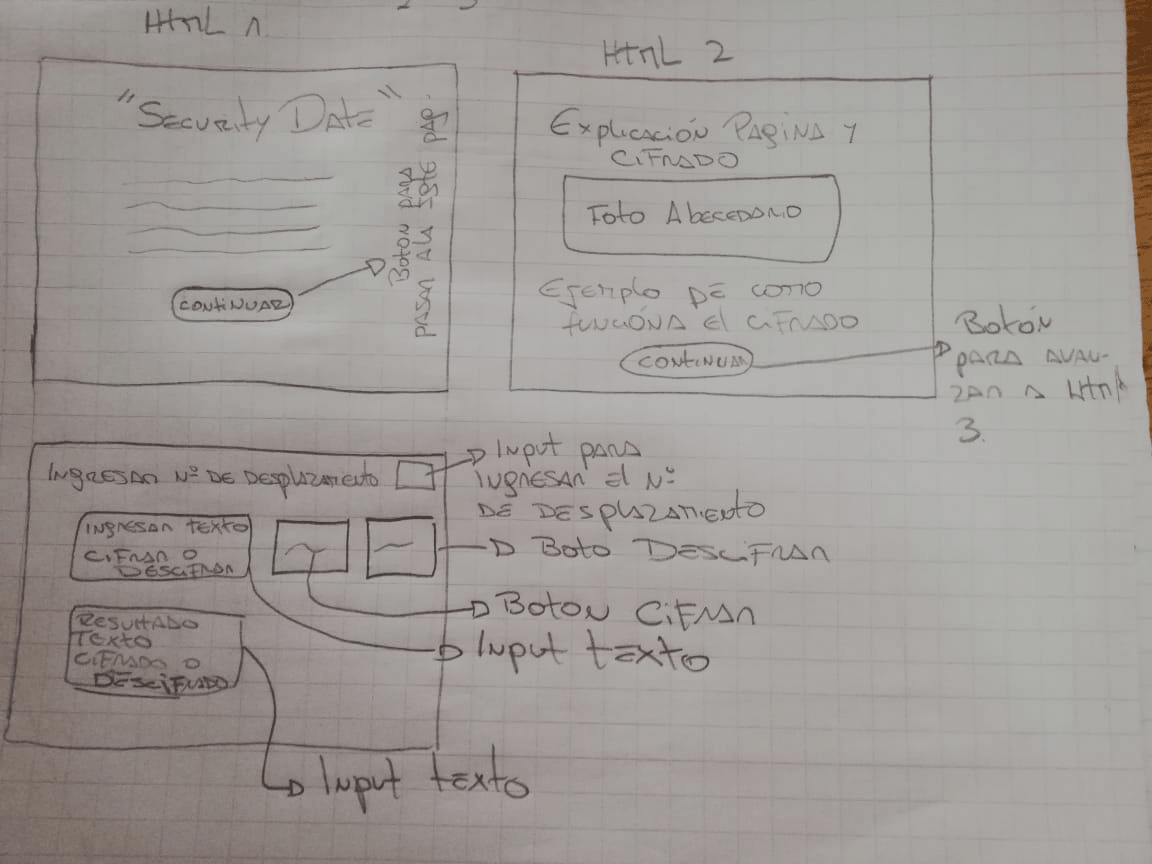 HtmL 1
"Security Date"
CONTINUAR
Boton para
pasar a la este pag.
HtmL 2
Explicación Pagina y
cifrado
Foto Abecedario
Ejemplo de como
funciona el cifrado
CONTINUAR
Botón
para avan-
zar a Html
3.
Ingresar Nº de desplazamiento
Input para
ingresar el Nº
de desplazamiento
Ingresar texto
cifrar o
descifrar
Boto Descifrar
Boton Cifrar
Input texto
Resultado
texto
cifrado o
descifrado
Input texto